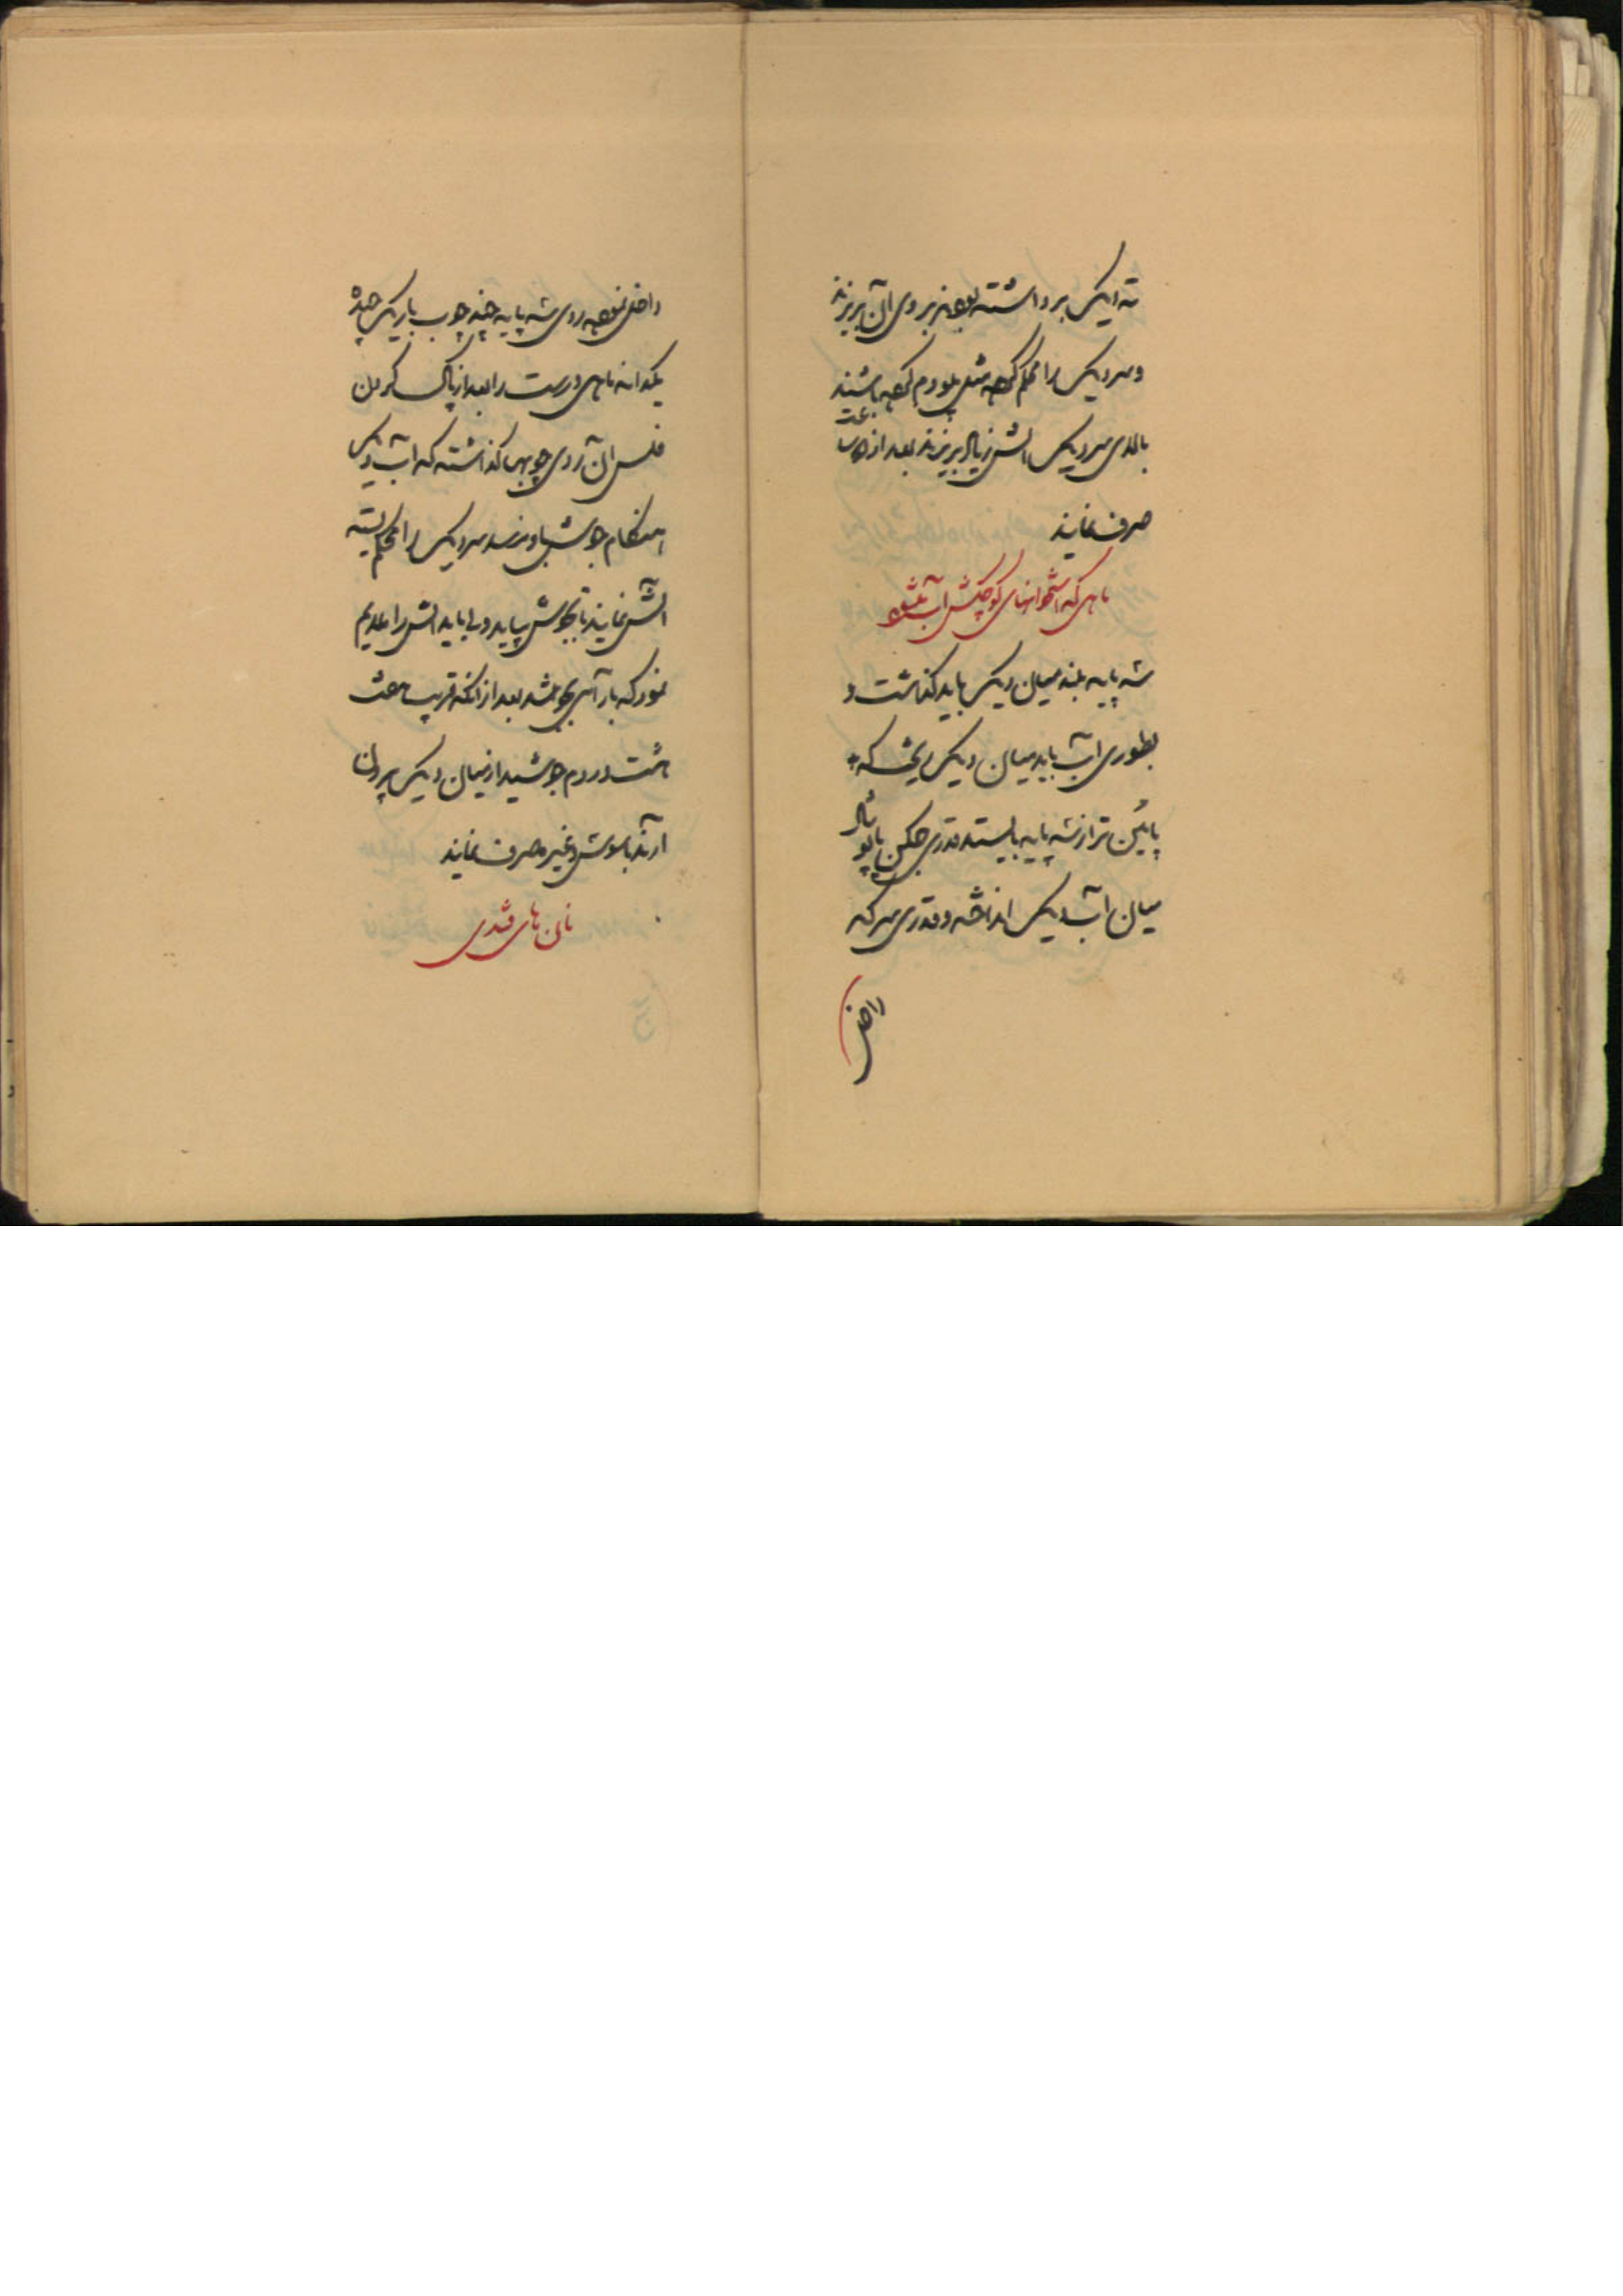 ته دیک برداشته بعد بروی آن بریزند
و سر دیک را محکم کرده مثل پلو دم کرده باشند
بالای سر دیک آتش زیاد بریزند بعد از دو ساعت
صرف نمایند
ماهی که استخوانهای کوچکش آب بشود
سه پایه بلند میان دیک باید گذاشت و
بطوری آب باید میان دیک ریخت که
پائین تر از سه پایه بایستد قدری
میان آب دیک انداخته و قدری سرکه
داخل
داخل نموده روی سه پایه چند چوب باریک چیده
یکدانه ماهی درست را بعد از پاک کردن
فلس آن روی چوبها گذاشته که آب دیک
هنگام جوش باو نرسد سر دیک را محکم بسته
آتش نمایند تا بجوش بیاید ولی باید آتش را ملایم
نمود که بآرامی بجوشد بعد از آنکه قریب ساعت
هشت در دم جوشید از میان دیک بیرون
آرند با سوش و غیره صرف نمایند
نان های قندی